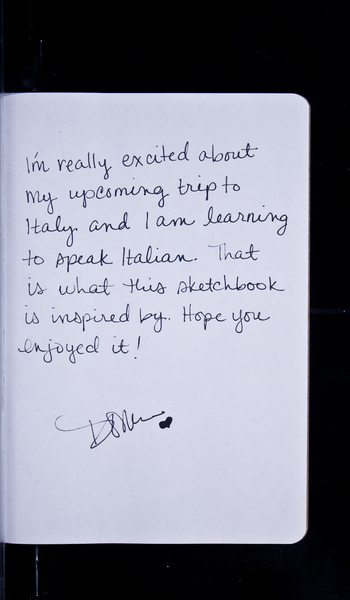 I'm really excited about
my upcoming trip to
Italy and I am learning
to speak Italian. That
is what this sketchbook
is inspired by. Hope you
enjoyed it!